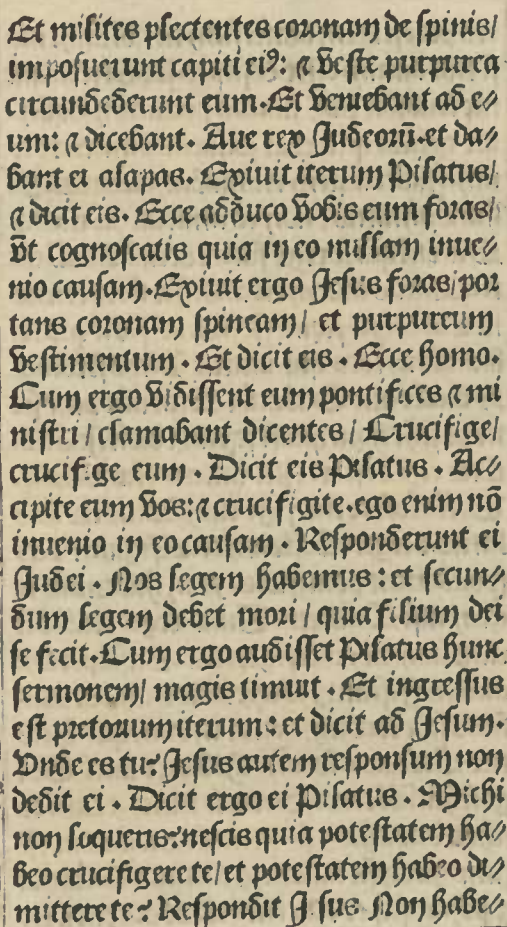 Et milites plectentes coronam de spinis/
imposuerunt capiti eiꝰ: ⁊ veste purpurea
circundederunt eum. Et veniebant ad e⸗
um: ⁊ dicebant. Aue rex Judeorū. et da⸗
bant ei alapas. Exiuit iterum Pilatus/
⁊ dicit eis. Ecce adduco vobis eum foras/
vt cognoscatis quia in eo nullam inue⸗
nio causam. Exiuit ergo Jesus foras/ por
tans coronam spineam/ et purpureum
vestimentum. Et dicit eis. Ecce homo.
Cum ergo vidissent eum pontifices ⁊ mi
nistri/ clamabant dicentes/ Crucifige/
crucifige eum. Dicit eis Pilatus. Ac⸗
cipite eum vos: ⁊ crucifigite. ego enim nō
inuenio in eo causam. Responderunt ei
Judei. Nos legem habemus: et secun⸗
dum legem debet mori/ quia filium dei
se fecit. Cum ergo audisset Pilatus hunc
sermonem/ magis timuit. Et ingressus
est pretorium iterum: et dicit ad Jesum.
Vnde es tu? Jesus autem responsum non
dedit ei. Dicit ergo ei Pilatus. Michi
non loqueris? nescis quia potestatem ha⸗
beo crucifigere te/ et potestatem habeo di⸗
mittere te? Respondit J sus Non habe⸗